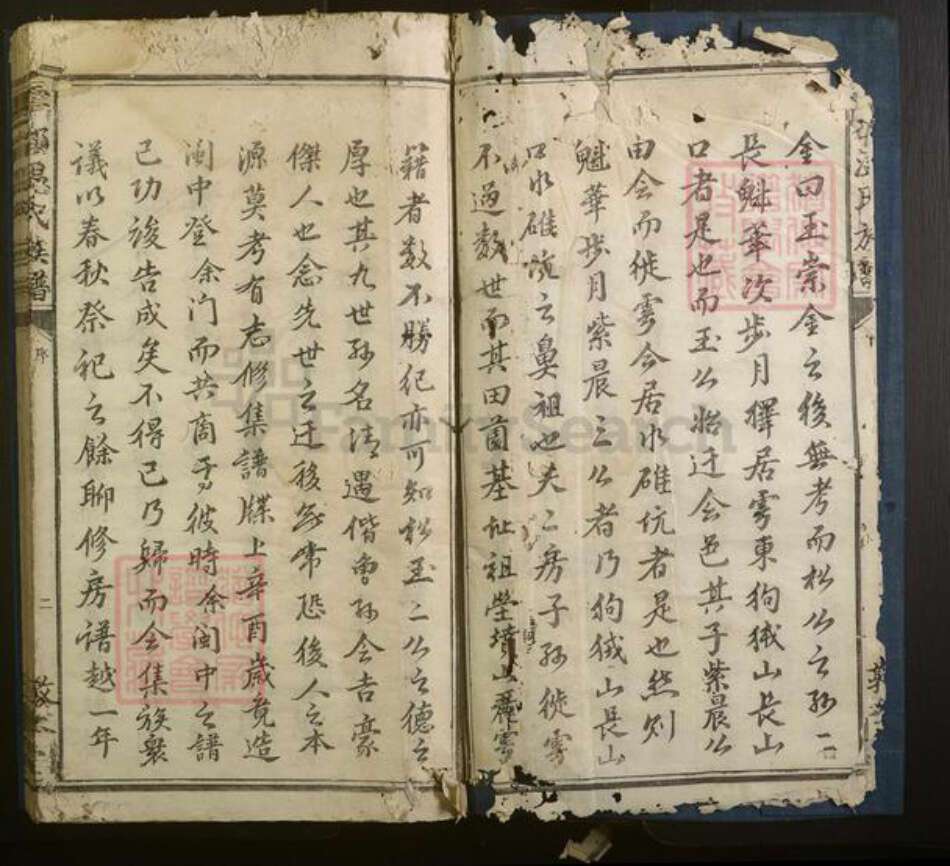 金曰玉崇金公後無考而松公之孫一
長魁華次步月擇居雩東狗狨山長山
口者是也而玉公始迁会邑其子紫晨公
由会而徙雩今居水碓坑者是也然则
魁華步月紫晨三公者乃狗狨山長山
口水碓坑之鼻祖也夫二房子孫徙雩
不過数世而其田园基址祖塋墳山麗雩
籍者数不勝纪亦可知松玉二公之德之
厚也其九世孫名清遇偕曾孫会吉豪
傑人也念先世之迁移無常恐後人之本
源莫考有志修集譜牒上辛酉歲竟造
闽中登余门而共商予彼時余闽中之譜
己功竣告成矣不得已乃歸而会集族衆
議以春秋祭祀之餘聊修房谱越一年
氏族譜
序
二
FamilySearch